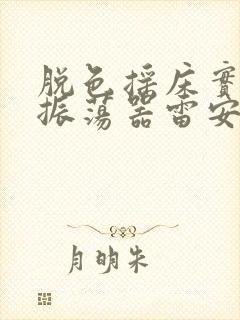 脱色摇床實
振荡器雷安
月明朱